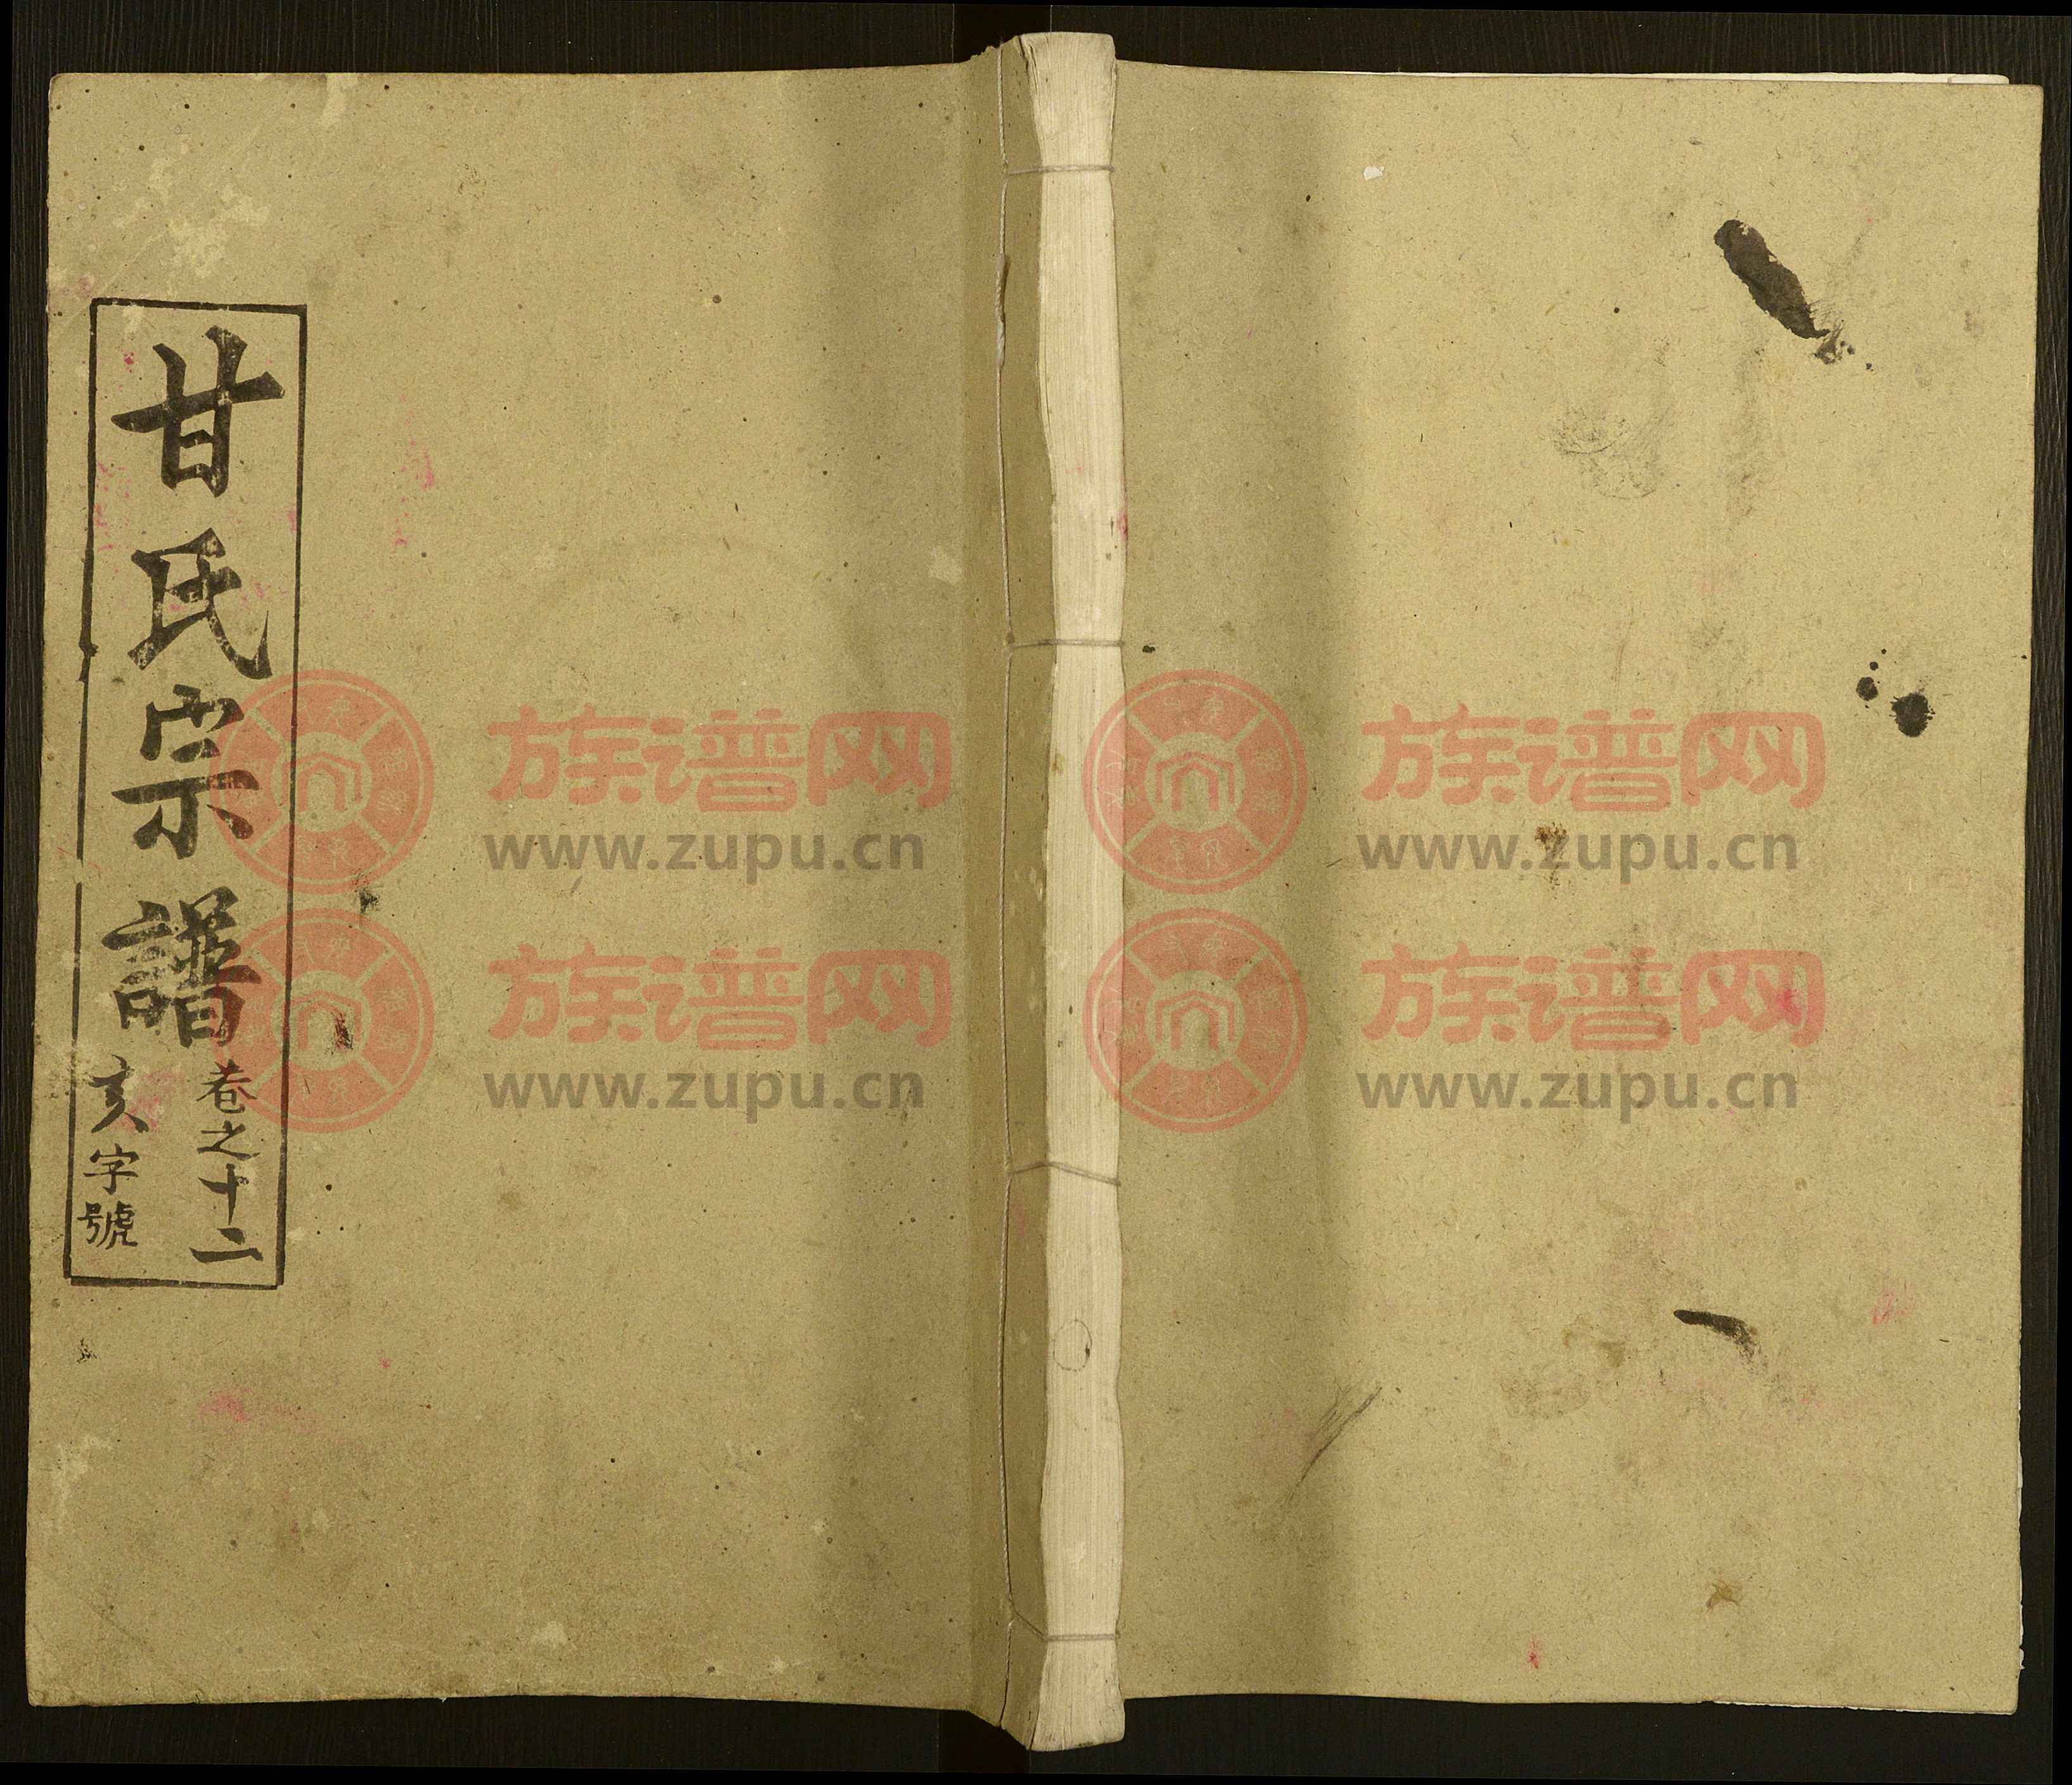 甘氏宗譜
卷之十二
亥字號
族谱网
www.zupu.cn
族谱网
www.zupu.cn
族谱网
www.zupu.cn
族谱网
www.zupu.cn